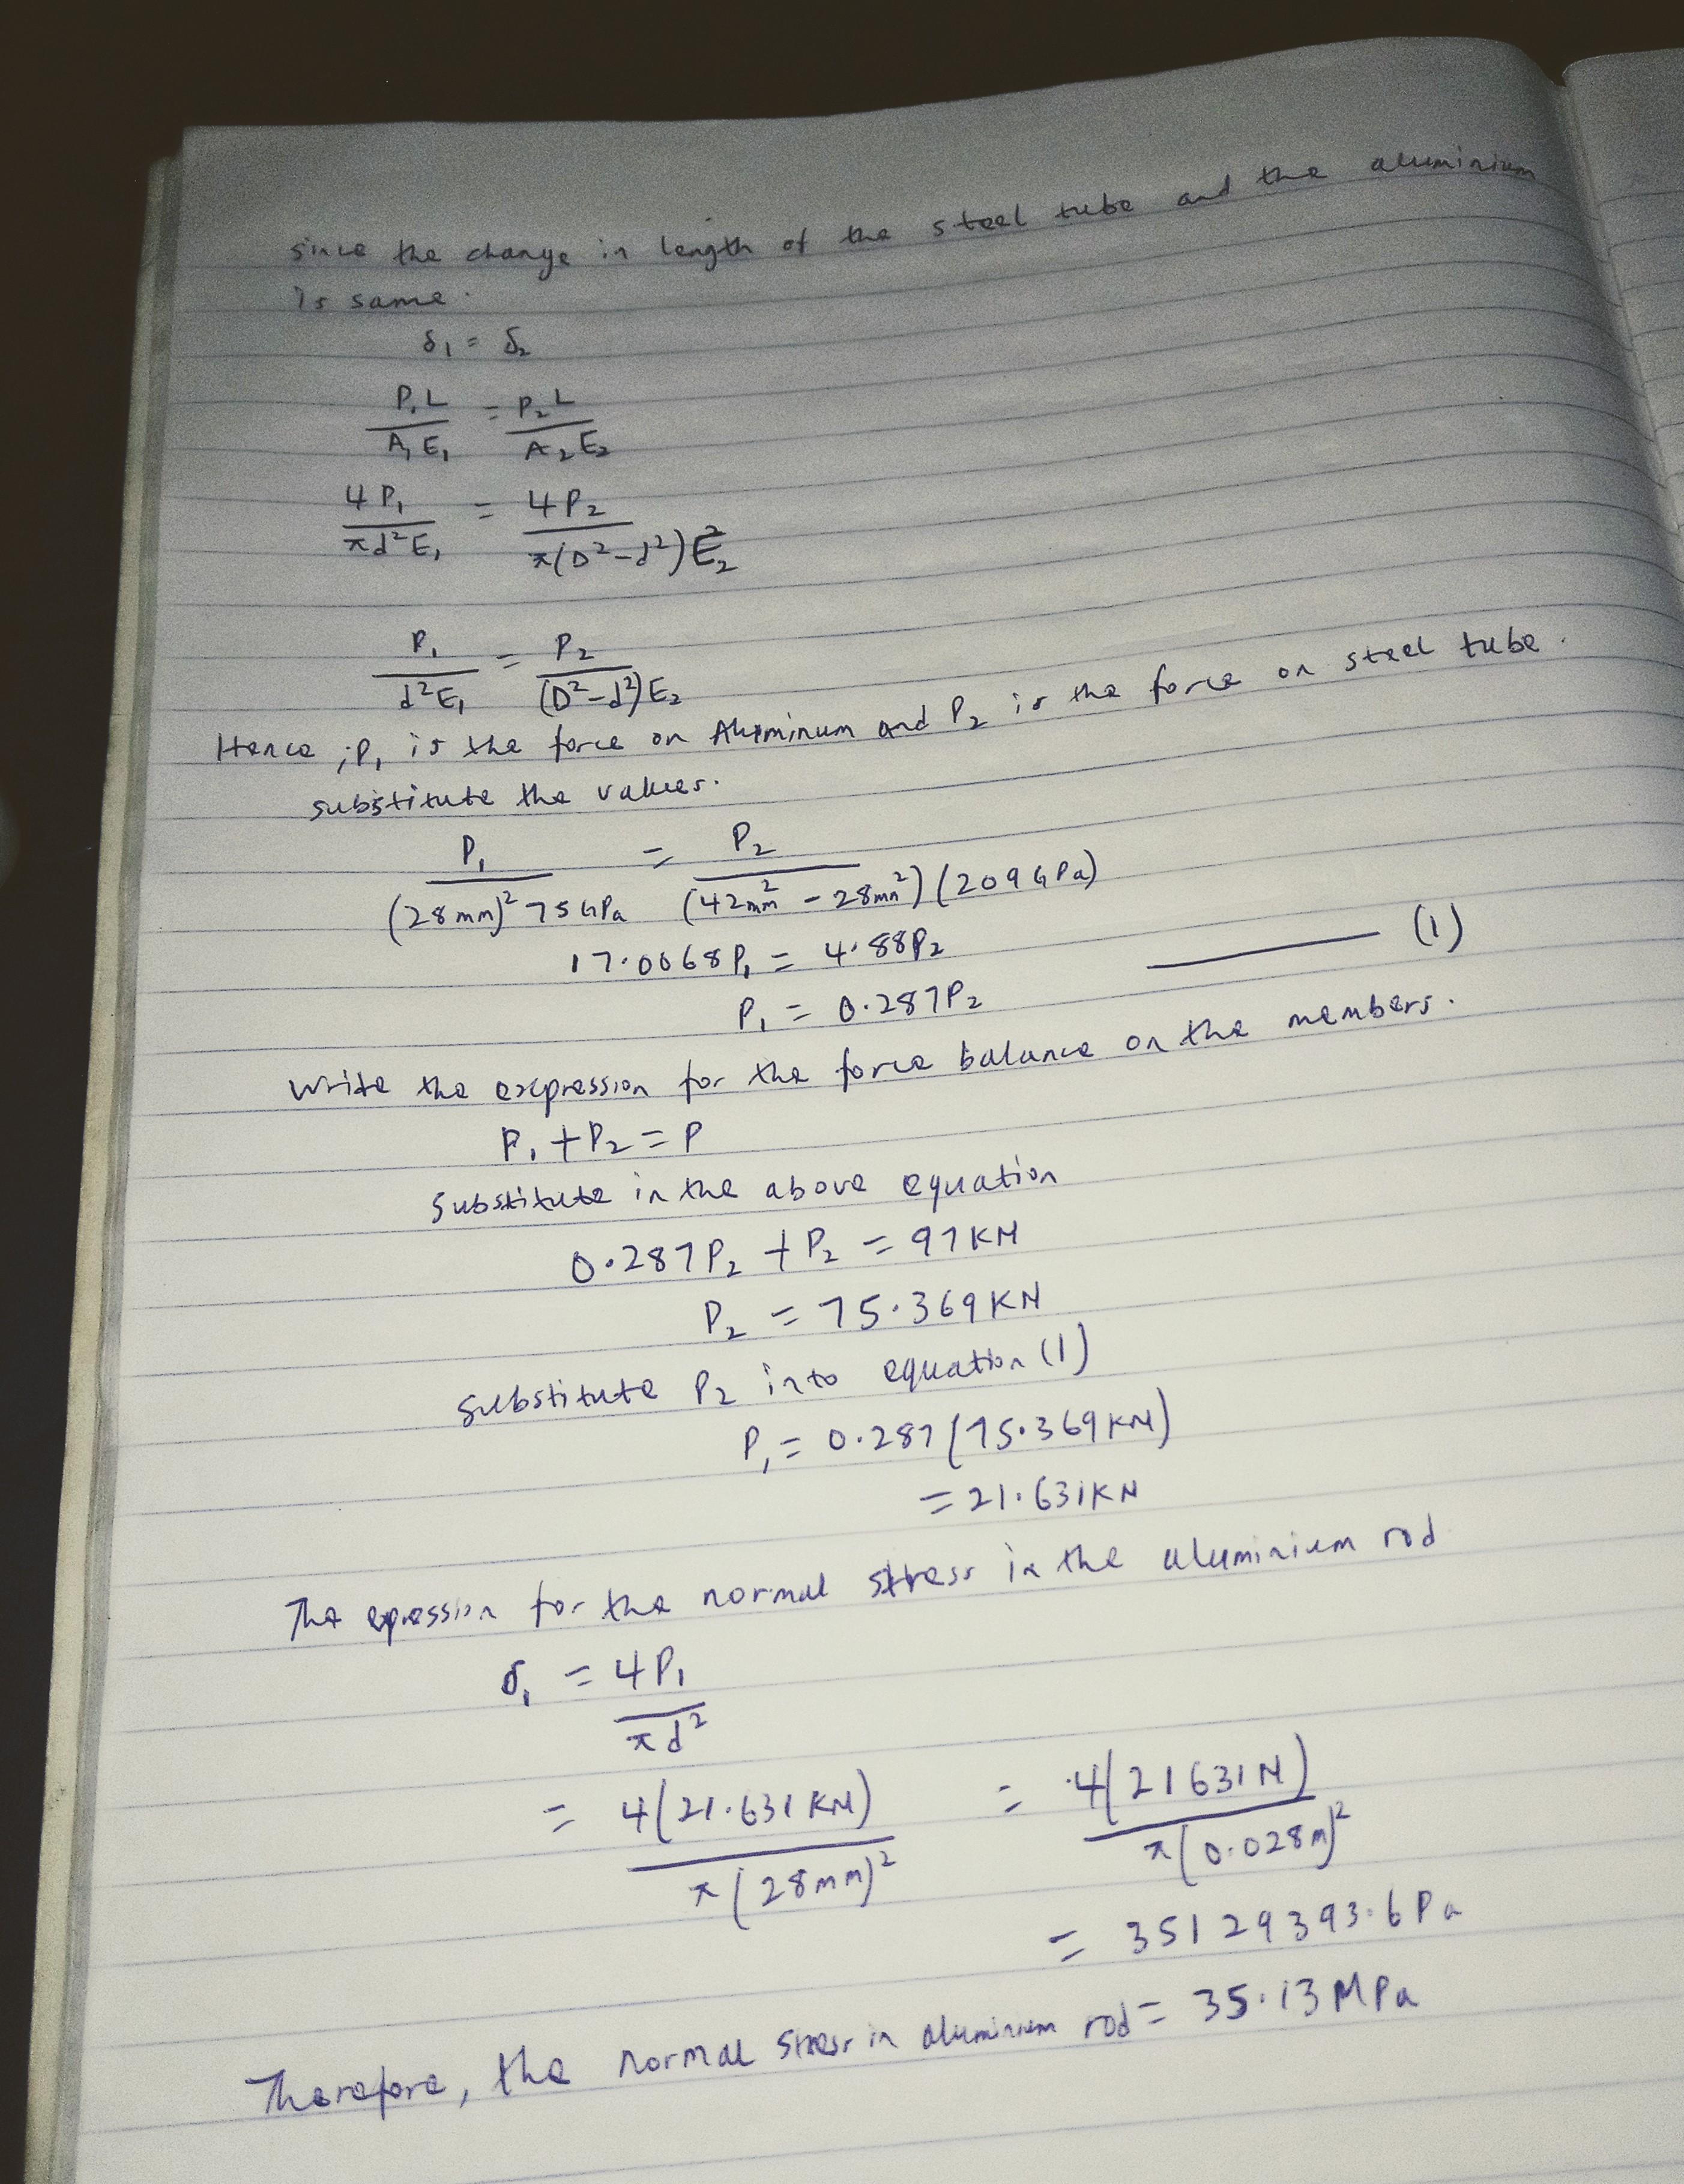 since the change in length of the steel tube and the aluminium
is same.
δ₁ = δ₂
P₁L/A₁E₁ = P₂L/A₂E₂
4P₁/πd²E₁ = 4P₂/π(D²-d²)E₂²
P₁/d²E₁ = P₂/(D²-d²)E₂
Hence ; P₁ is the force on Aluminum and P₂ is the force on steel tube.
substitute the values.
P₁/(28mm)² 75GPa = P₂/(42mm² - 28mm²)(209GPa)
17.0068P₁ = 4.88P₂
P₁ = 0.287P₂ ——— (1)
Write the expression for the force balance on the members.
P₁ + P₂ = P
Substitute in the above equation
0.287P₂ + P₂ = 97KN
P₂ = 75.369KN
Substitute P₂ into equation (1)
P₁ = 0.287(75.369KN)
= 21.631KN
The epression for the normal stress in the aluminium rod
σ₁ = 4P₁/πd²
= 4(21.631KN)/π(28mm)² = 4(21631N)/π(0.028m)²
= 35129393.6Pa
Therefore, the normal stress in aluminium rod = 35.13MPa